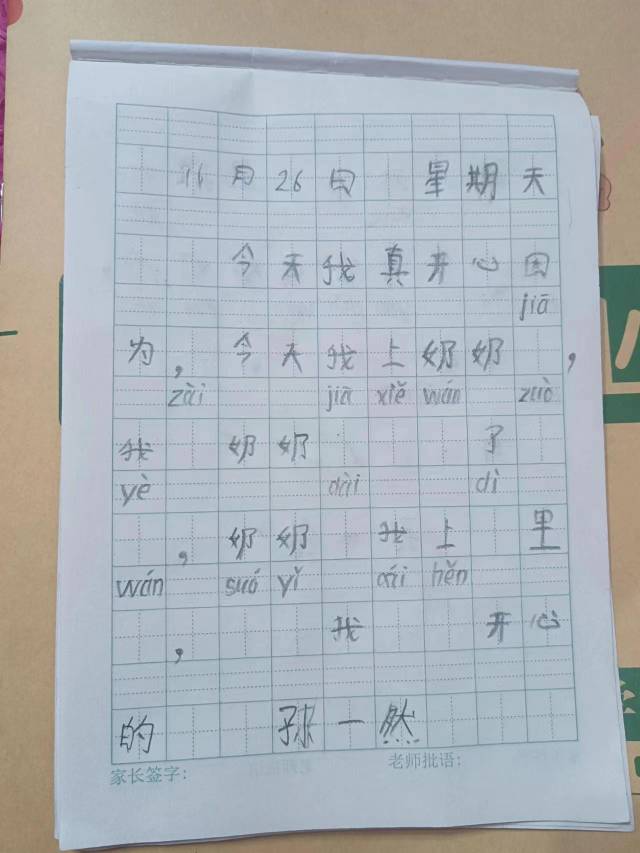 11月26日 星期天
今天我真开心因
jiā
为，今天我上奶奶，
zài jiā xiě wán zuò
我 奶奶 了
yè dài dì
，奶奶 我上里
wán suó yǐ cái hěn
， 我 开心
的 孙一然
家长签字： 老师批语：